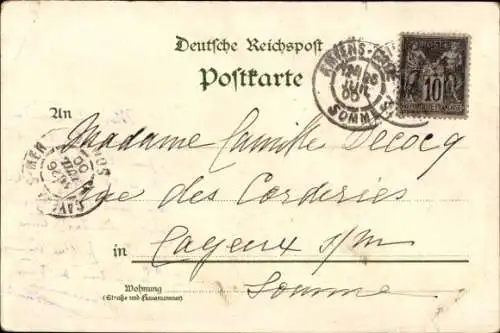 Deutsche Reichspost
Postkarte
AMIENS-GARE
SOMME
POSTE
10
REPUBLIQUE FRANCAISE
An
Madame Camille Decocq
rue des Corderies
in Cayeux s/m
Somme
Wohnung
(Straße und Hausnummer)
CAYEUX S MER